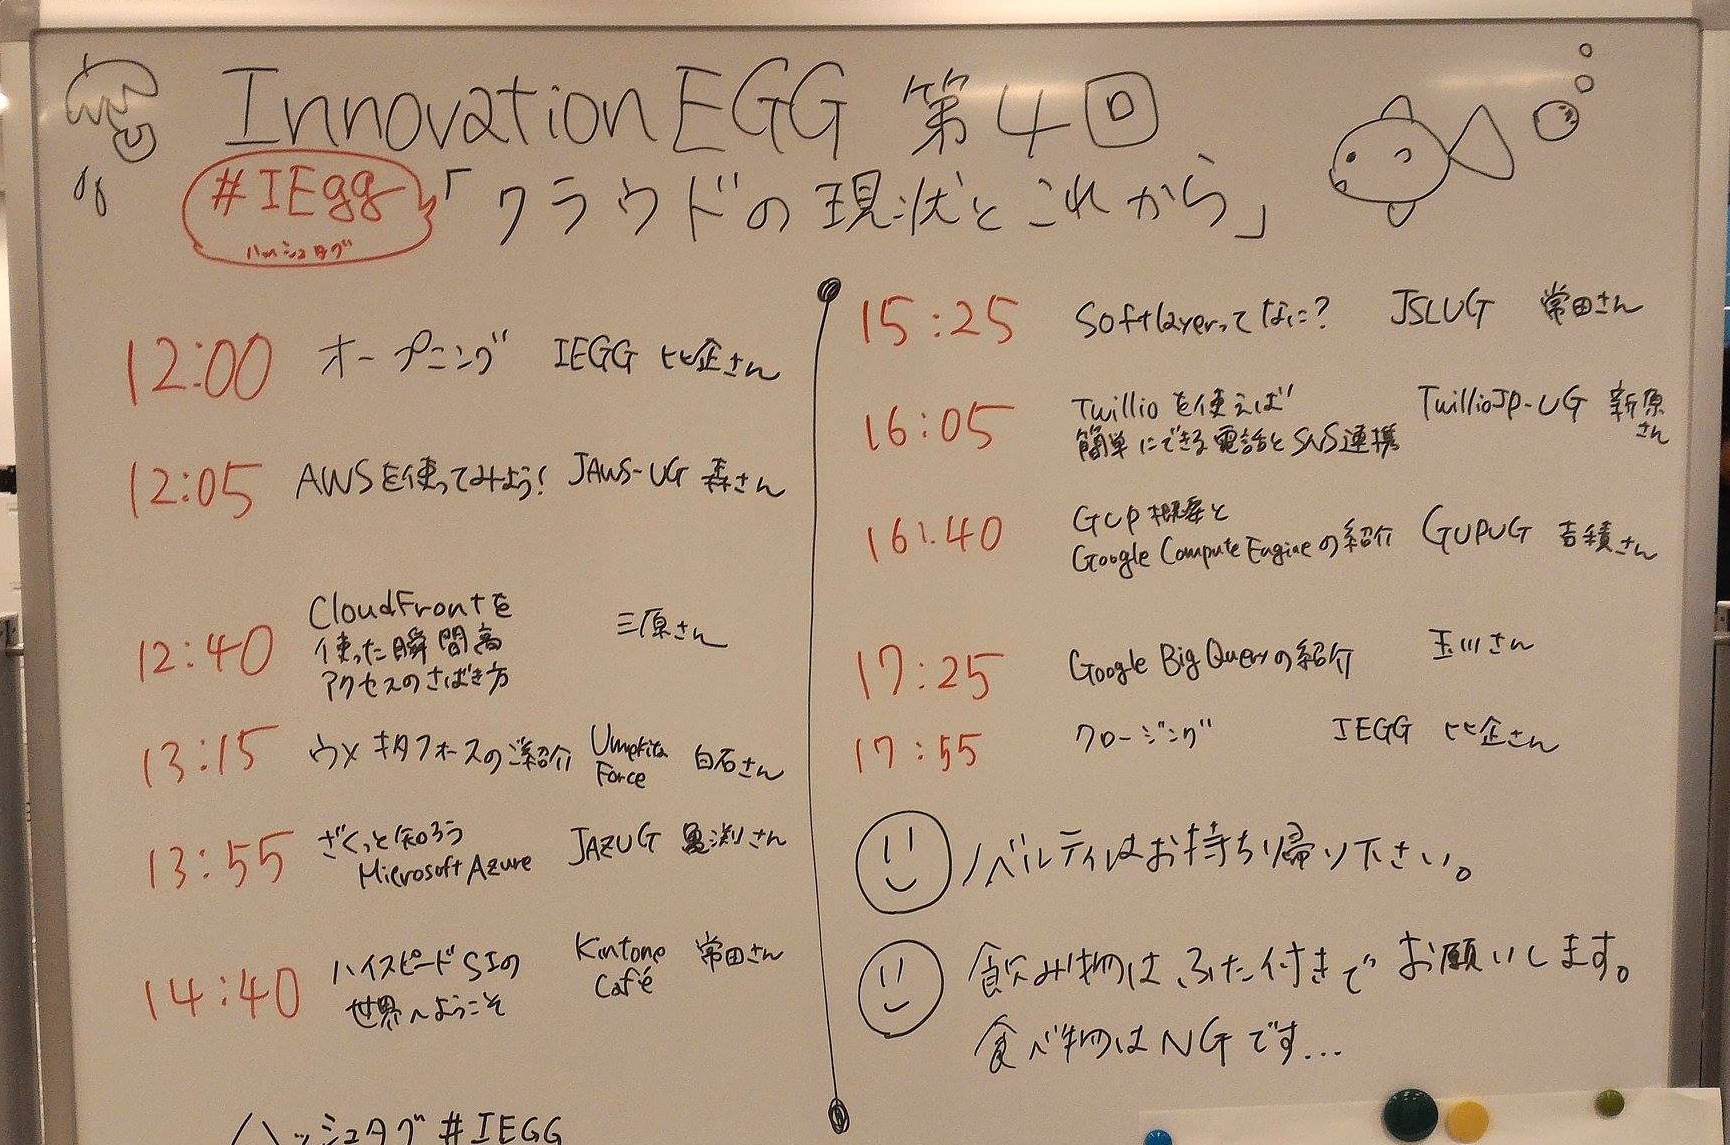 InnovationEGG 第4回
#IEgg
ハッシュタグ
「クラウドの現状とこれから」
12:00 オープニング IEGG 比企さん
12:05 AWSを使ってみよう! JAWS-UG 森さん
12:40 CloudFrontを
使った瞬間高
アクセスのさばき方
三原さん
13:15 ウメキタフォースのご紹介 Umekita
Force
白石さん
13:55 ざくっと知ろう
Microsoft Azure
JAZUG 亀渕さん
14:40 ハイスピードSIの
世界へようこそ
Kintone
Café
常田さん
ハッシュタグ #IEGG
15:25 Softlayerってなに? JSLUG 常田さん
16:05 Twillioを使えば
簡単にできる電話とSNS連携
TwillioJP-UG 新原
さん
16:40 GCP概要と
Google Compute Engineの紹介
GCPUG 吉積さん
17:25 Google BigQueryの紹介 玉川さん
17:55 クロージング IEGG 比企さん
ノベルティはお持ち帰り下さい。
飲み物はふた付きでお願いします。
食べ物はNGです...